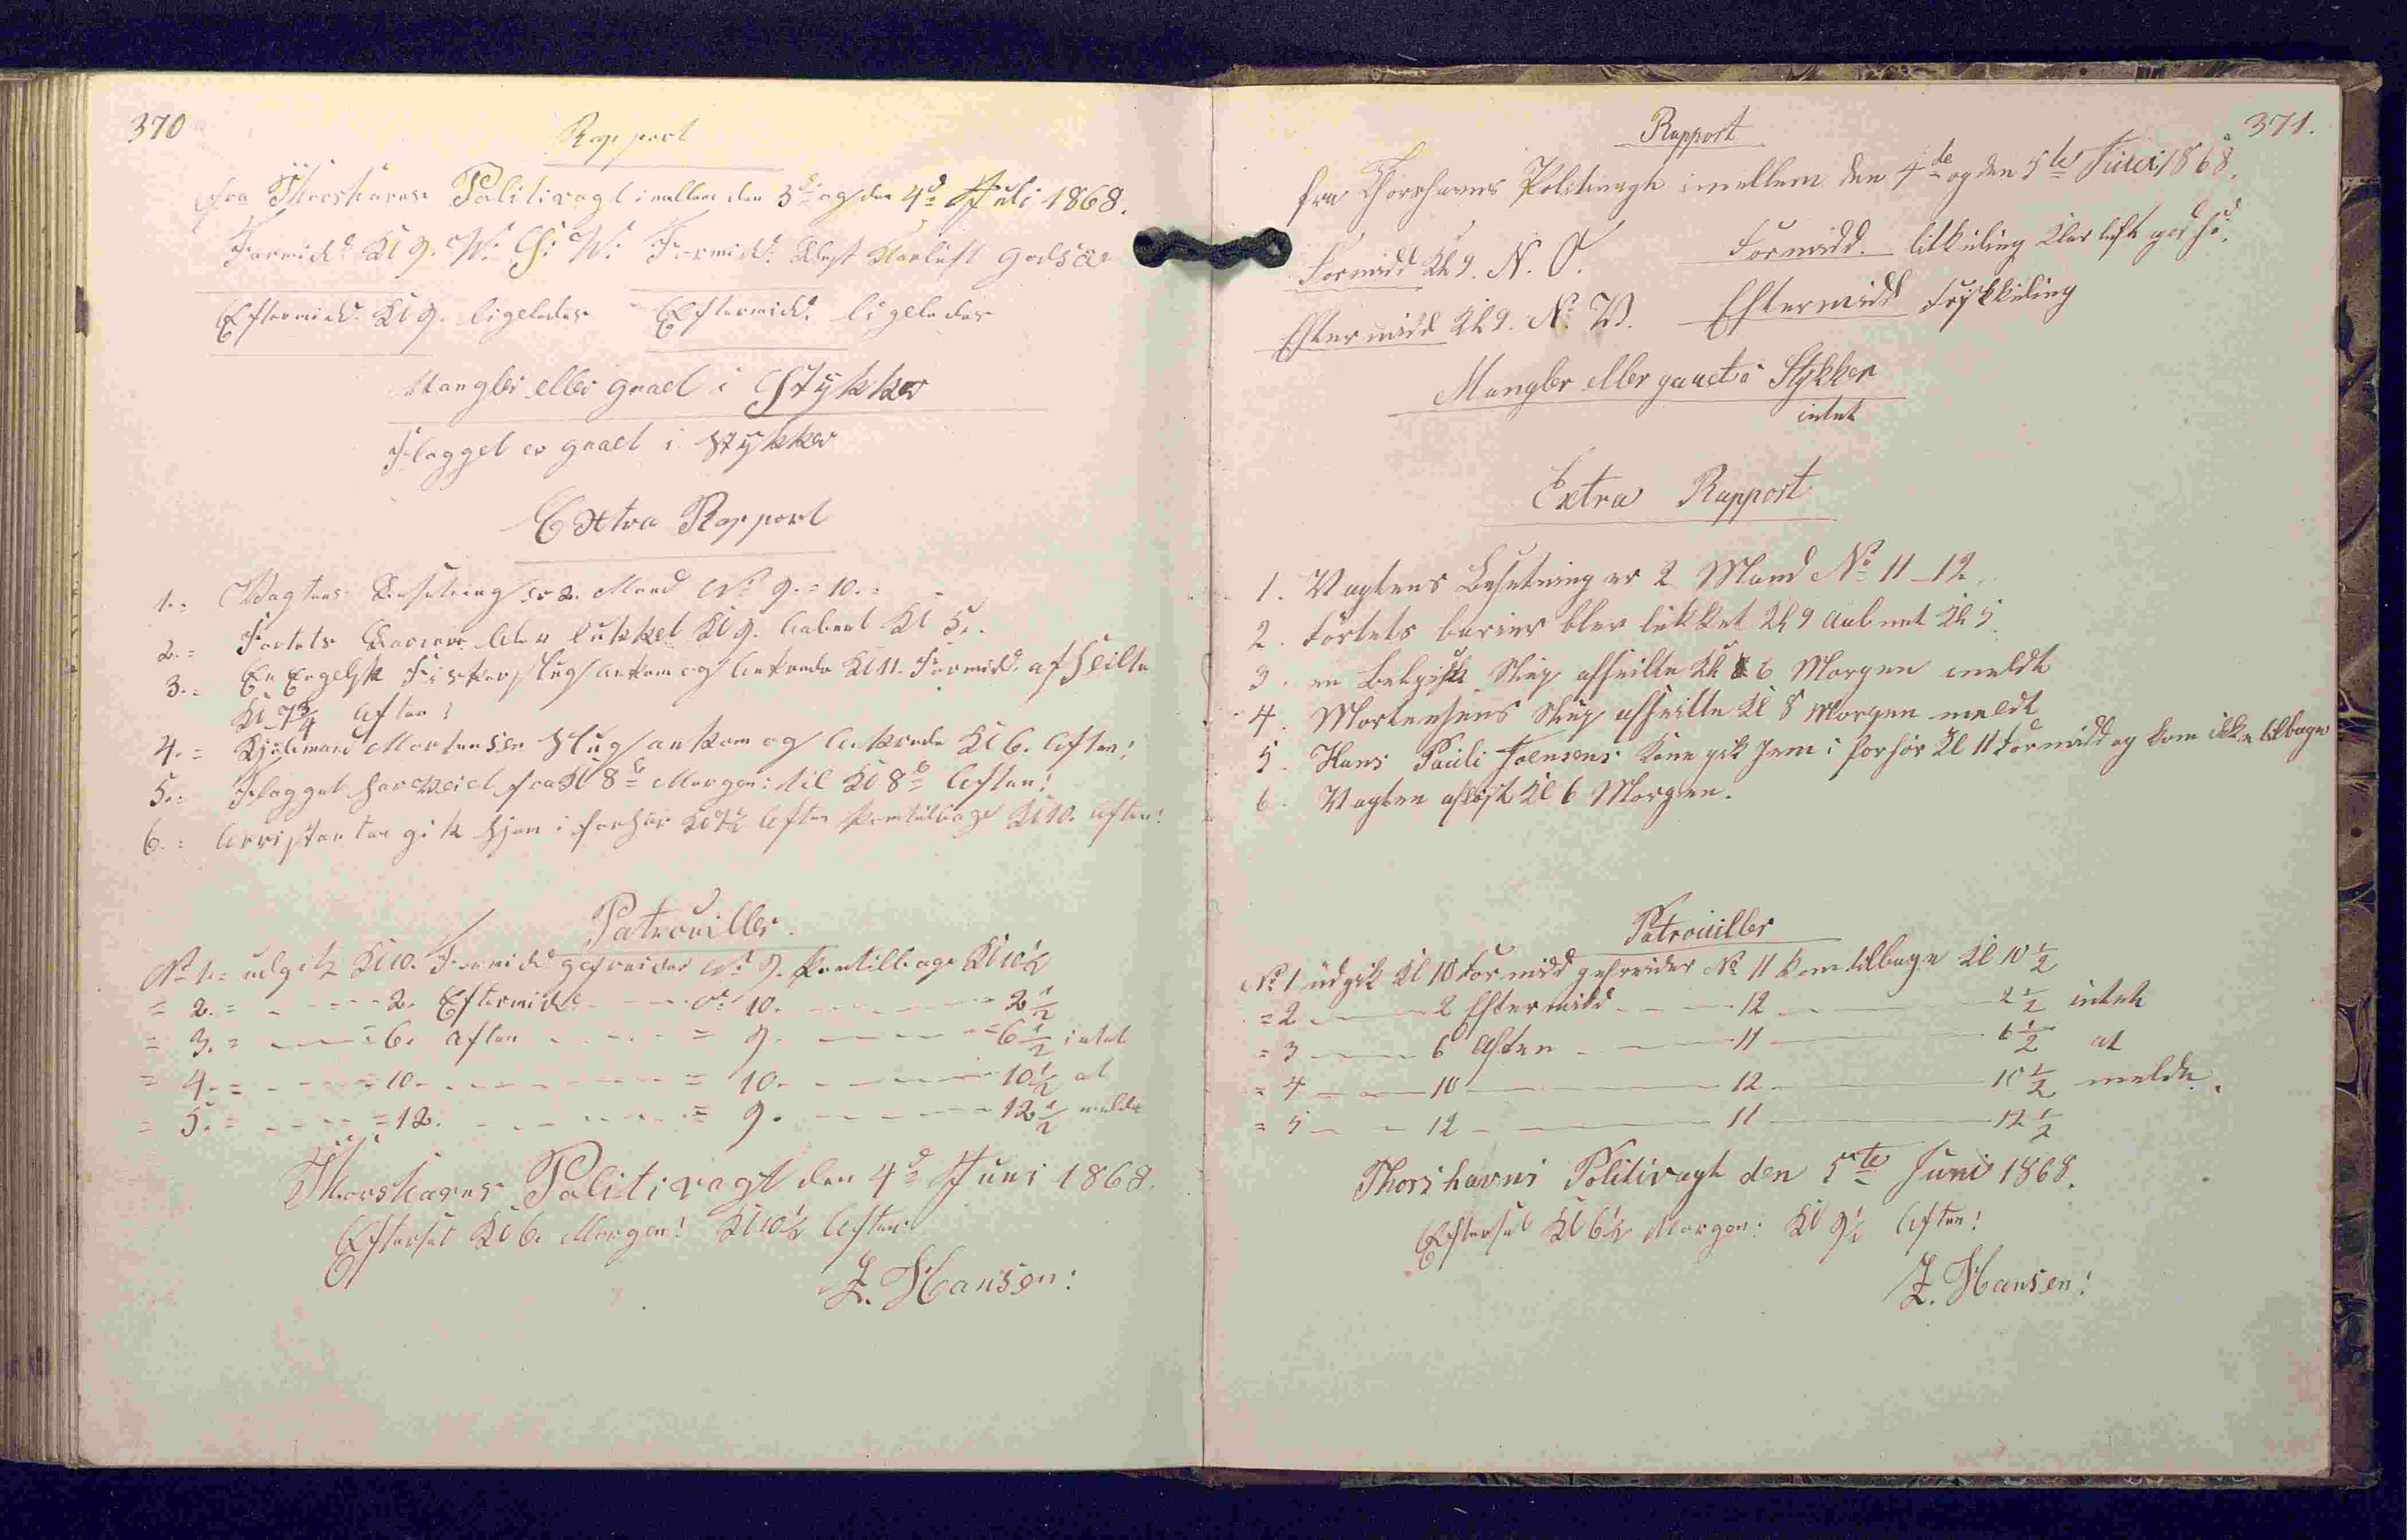 370
Rapport
fra Thorshavns Politivagt imellem den 3d og den 4d Juli 1868.
Formidd Kl 9. V. S. V. Formidd: Klarluft godsæ
Eftermidd. Kl 9. ligeledes Eftermidd. ligeledes
Mangler eller gaael i Stykker
Flaggel er gaael i Stykker
Extra Rapport
1.= Vagtens Besetning er 2. Mand No 9.=10.=
2.= Fortets Barriere blev lukket Kl 9. Aabent Kl 5.
3.= En Engelsk Fiskerslup Ankom og Ankrede Kl 11. Formidd. afseilte
Kl 7 3/4 Aften:
4.= Mortensen Slup ankom og Ankrede Kl 6. Aften!
5.= Flagget har veiet fra Kl 8 Morgen: til Kl 8 Aften!
6.= Arristanten gik hjem i forhør Aften kom tilbage Kl 10. Aften!
Patrouiller.
No 1= udgik Kl 10. Formidd gefreider No 9. kom tilbage Kl 10 1/2
= 2.= - - - - 2. Eftermidd - - - No 10. - - - - 2 1/2
= 3.= - - - = 6. Aften - - - - = 9. - - - = 6 1/2 intet
= 4.= - - - = 10. - - - - - - = 10. - - - - 10 1/2 at
= 5.= - - - = 12. - - - - - = 9. - - - - 12 1/2 melde
Thorshavns Politivagt den 4d Juni 1868.
Efterset Kl 6. Morgen! Kl 10 1/2 Aften:
Z. Hansen:
371.
Rapport
fra Thorshavns Politivagt imellem den 4de og den 5te Juni 1868.
Formidd Kl 9. N. O. Formidd. litkuling Klar luft god sø.
Eftermidd Kl 9. N. V. Eftermidd friskkuling
Mangler eller gaaet i Stykker
intet
Extra Rapport
1. Vagtens Besetning er 2 Mand No 11-12.
2. Fortets barier blev lukket Kl 9 Aabnet Kl 5
3. en Belgisk Slup afseilte Kl 6 Morgen meldt
4. Mortensens Slup afseilte Kl 8 Morgen meldt
5. Hans Pauli Joensens Kone gik hem i forhør Kl 11 Formidd og kom ikke tilbage
6. Vagten afløst Kl 6 Morgen.
Patrouiller
No 1 udgik Kl 10 Formidd gefreider No 11 kom tilbage Kl 10 1/2
= 2 - - - 2 Eftermidd - - - 12 - - - 2 1/2 intet
= 3 - - - 6 Aften - - - 11 - - - 6 1/2 at
= 4 - - - 10 - - - 12 - - - 10 1/2 melde.
= 5 - - 12 - - - 11 - - - 12 1/2
Thorshavns Politivagt den 5te Juni 1868.
Efterset Kl 6 1/2 Morgen: Kl 9 1/2 Aften!
Z. Hansen!